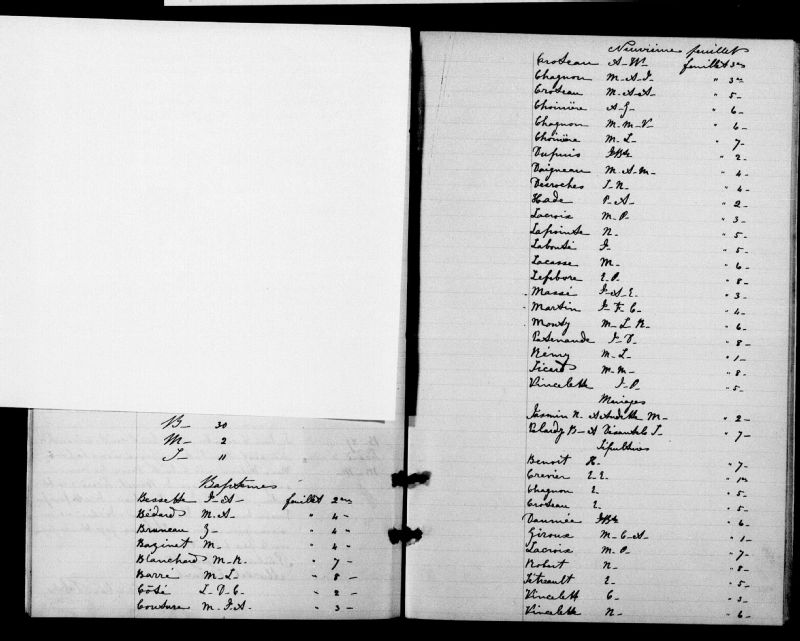 B— 30
M— 2
S— 11
Baptêmes
Bessette J-A- feuillet 2me
Bédard M. A- " 4-
Bruneau Z- " 4-
Bazinet M- " 4-
Blanchard M-R. " 7-
Barré M-L- " 8-
Côté L-D-C- " 2-
Couture M-J-A- " 3-
Neuvième feuillet
Croteau A-W- feuillet 3me
Chagnon M-A-J- " 3me
Croteau M-A-A- " 5-
Choinière A-G- " 6-
Chagnon M-M-V- " 6-
Choinière M-L- " 7-
Dupuis JBte " 2-
Daigneau M-A-M- " 4-
Desroches J-N- " 4-
Hade P-A- " 2-
Lacroix M-P- " 3-
Lapointe N- " 5-
Labonté J- " 5-
Lacasse M- " 6-
Lefebvre E-P- " 8-
Massé J-A-E- " 3-
Martin J-F-C- " 4-
Monty M-L-R- " 6-
Patenaude J-D- " 8-
Rémy M-L- " 1-
Sicard M-M- " 8-
Vincelette J-P- " 5-
Mariages
Jasmin N-A Audette M- " 2-
B-A J- " 7-
Sépultures
Benoit R- " 7-
Grenier E-E- " 1re
Chagnon E- " 5-
Croteau E- " 5-
JBte " 6-
Giroux M-C-A- " 1-
Lacroix M-P- " 7-
Robert N- " 8-
Tétreault E- " 5-
Vincelett C- " 3-
Vincelette N- " 6-